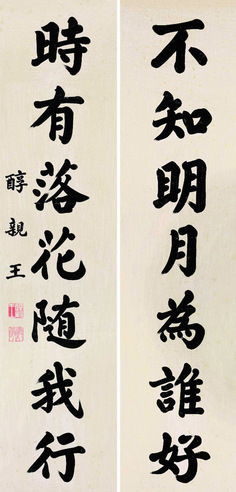 不知明月為誰好
時有落花随我行
醇親王